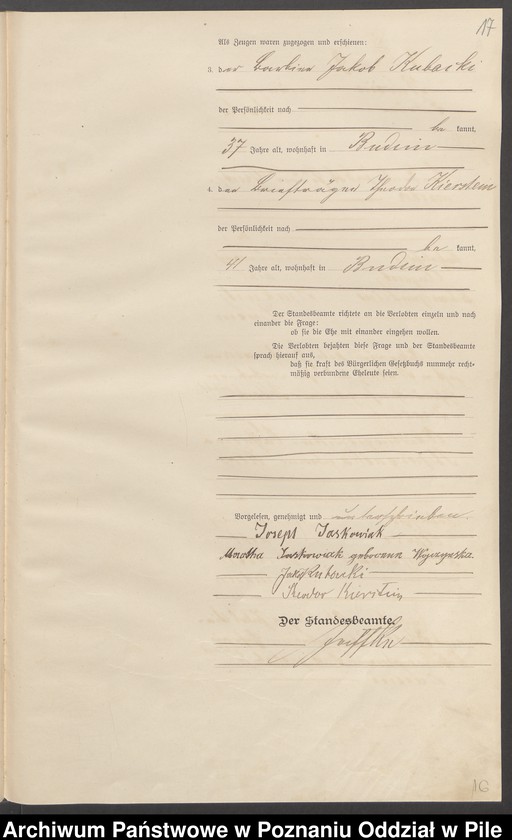 17
Als Zeugen waren zugezogen und erschienen:
3. der Jakob Kubacki
der Persönlichkeit nach
be kannt,
37 Jahre alt, wohnhaft in Budsin
4. der Briefträger Theodor Kierstein
der Persönlichkeit nach
be kannt,
41 Jahre alt, wohnhaft in Budsin
Der Standesbeamte richtete an die Verlobten einzeln und nach
einander die Frage:
ob sie die Ehe mit einander eingehen wollen.
Die Verlobten bejahten diese Frage und der Standesbeamte
sprach hierauf aus,
daß sie kraft des Bürgerlichen Gesetzbuchs nunmehr recht-
mäßig verbundene Eheleute seien.
Vorgelesen, genehmigt und unterschrieben.
Joseph Jaskowiak
Martha Jaskowiak geborene
Jakob Kubacki
Theodor Kierstein
Der Standesbeamte.
16
Archiwum Państwowe w Poznaniu Oddział w Pile